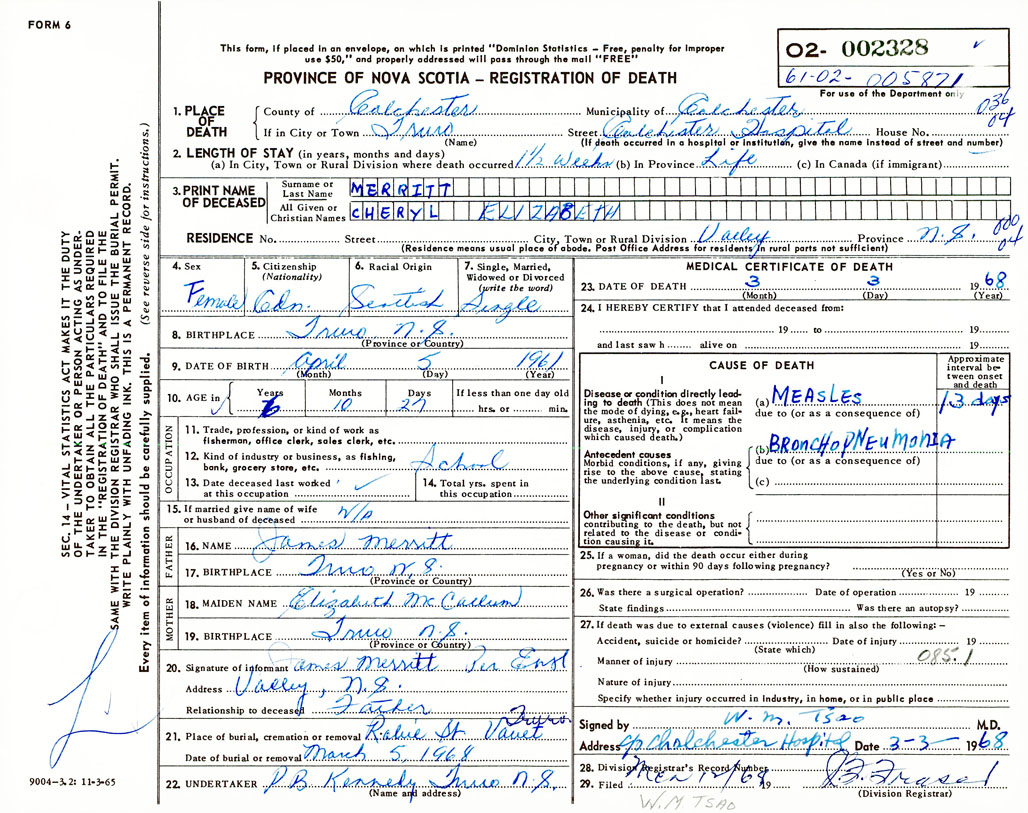 FORM 6
This form, if placed in an envelope, on which is printed "Dominion Statistics – Free, penalty for improper
use $50," and properly addressed will pass through the mail "FREE"
PROVINCE OF NOVA SCOTIA – REGISTRATION OF DEATH
O2- 002328
61-02- 005871
For use of the Department only
1. PLACE OF DEATH
County of Colchester Municipality of Colchester 036
If in City or Town Truro Street Colchester Hospital House No. 04
(Name) (If death occurred in a hospital or institution, give the name instead of street and number)
2. LENGTH OF STAY (in years, months and days)
(a) In City, Town or Rural Division where death occurred 1½ Weeks (b) In Province Life (c) In Canada (if immigrant)
3. PRINT NAME OF DECEASED
Surname or Last Name MERRITT
All Given or Christian Names CHERYL ELIZABETH
RESIDENCE No. Street City, Town or Rural Division Valley Province N.S. 000 04
(Residence means usual place of abode. Post Office Address for residents in rural parts not sufficient)
4. Sex Female
5. Citizenship (Nationality) Cdn.
6. Racial Origin Scottish
7. Single, Married, Widowed or Divorced (write the word) Single
8. BIRTHPLACE Truro N.S.
(Province or Country)
9. DATE OF BIRTH April 5 1961
(Month) (Day) (Year)
10. AGE in Years 6 Months 10 Days 27 If less than one day old hrs. or min.
OCCUPATION
11. Trade, profession, or kind of work as
fisherman, office clerk, sales clerk, etc.
12. Kind of industry or business, as fishing,
bank, grocery store, etc. School
13. Date deceased last worked at this occupation
14. Total yrs. spent in this occupation
15. If married give name of wife
or husband of deceased N/A
FATHER
16. NAME James Merritt
17. BIRTHPLACE Truro N.S.
(Province or Country)
MOTHER
18. MAIDEN NAME Elizabeth McCallum
19. BIRTHPLACE Truro N.S.
(Province or Country)
20. Signature of informant James Merritt Per
Address Valley, N.S.
Relationship to deceased Father
21. Place of burial, cremation or removal Robie St. Truro
Date of burial or removal March 5, 1968
22. UNDERTAKER P B Kennedy Truro N.S.
(Name and address)
MEDICAL CERTIFICATE OF DEATH
23. DATE OF DEATH 3 3 1968
(Month) (Day) (Year)
24. I HEREBY CERTIFY that I attended deceased from:
19 to 19
and last saw h alive on 19
CAUSE OF DEATH
Approximate interval between onset and death
I
Disease or condition directly leading to death (This does not mean the mode of dying, e.g., heart failure, asthenia, etc. It means the disease, injury, or complication which caused death.)
(a) MEASLES 13 days
due to (or as a consequence of)
Antecedent causes
Morbid conditions, if any, giving rise to the above cause, stating the underlying condition last.
(b) BRONCHOPNEUMONIA
due to (or as a consequence of)
(c)
II
Other significant conditions
contributing to the death, but not related to the disease or condition causing it.
25. If a woman, did the death occur either during
pregnancy or within 90 days following pregnancy?
(Yes or No)
26. Was there a surgical operation? Date of operation 19
State findings Was there an autopsy?
27. If death was due to external causes (violence) fill in also the following: –
Accident, suicide or homicide? Date of injury 19
(State which)
Manner of injury 085.1
(How sustained)
Nature of injury
Specify whether injury occurred in industry, in home, or in public place
Signed by W. M. Tsao M.D.
Address c/o Cholchester Hospital Date 3-3- 1968
28. Division Registrar's Record Number
29. Filed 19
(Division Registrar)
W.M TSAO
SEC. 14 – VITAL STATISTICS ACT MAKES IT THE DUTY
OF THE UNDERTAKER OR PERSON ACTING AS UNDER-
TAKER TO OBTAIN ALL THE PARTICULARS REQUIRED
IN THE "REGISTRATION OF DEATH" AND TO FILE THE
SAME WITH THE DIVISION REGISTRAR WHO SHALL ISSUE THE BURIAL PERMIT.
WRITE PLAINLY WITH UNFADING INK. THIS IS A PERMANENT RECORD.
Every item of information should be carefully supplied. (See reverse side for instructions.)
9004-3.2: 11-3-65